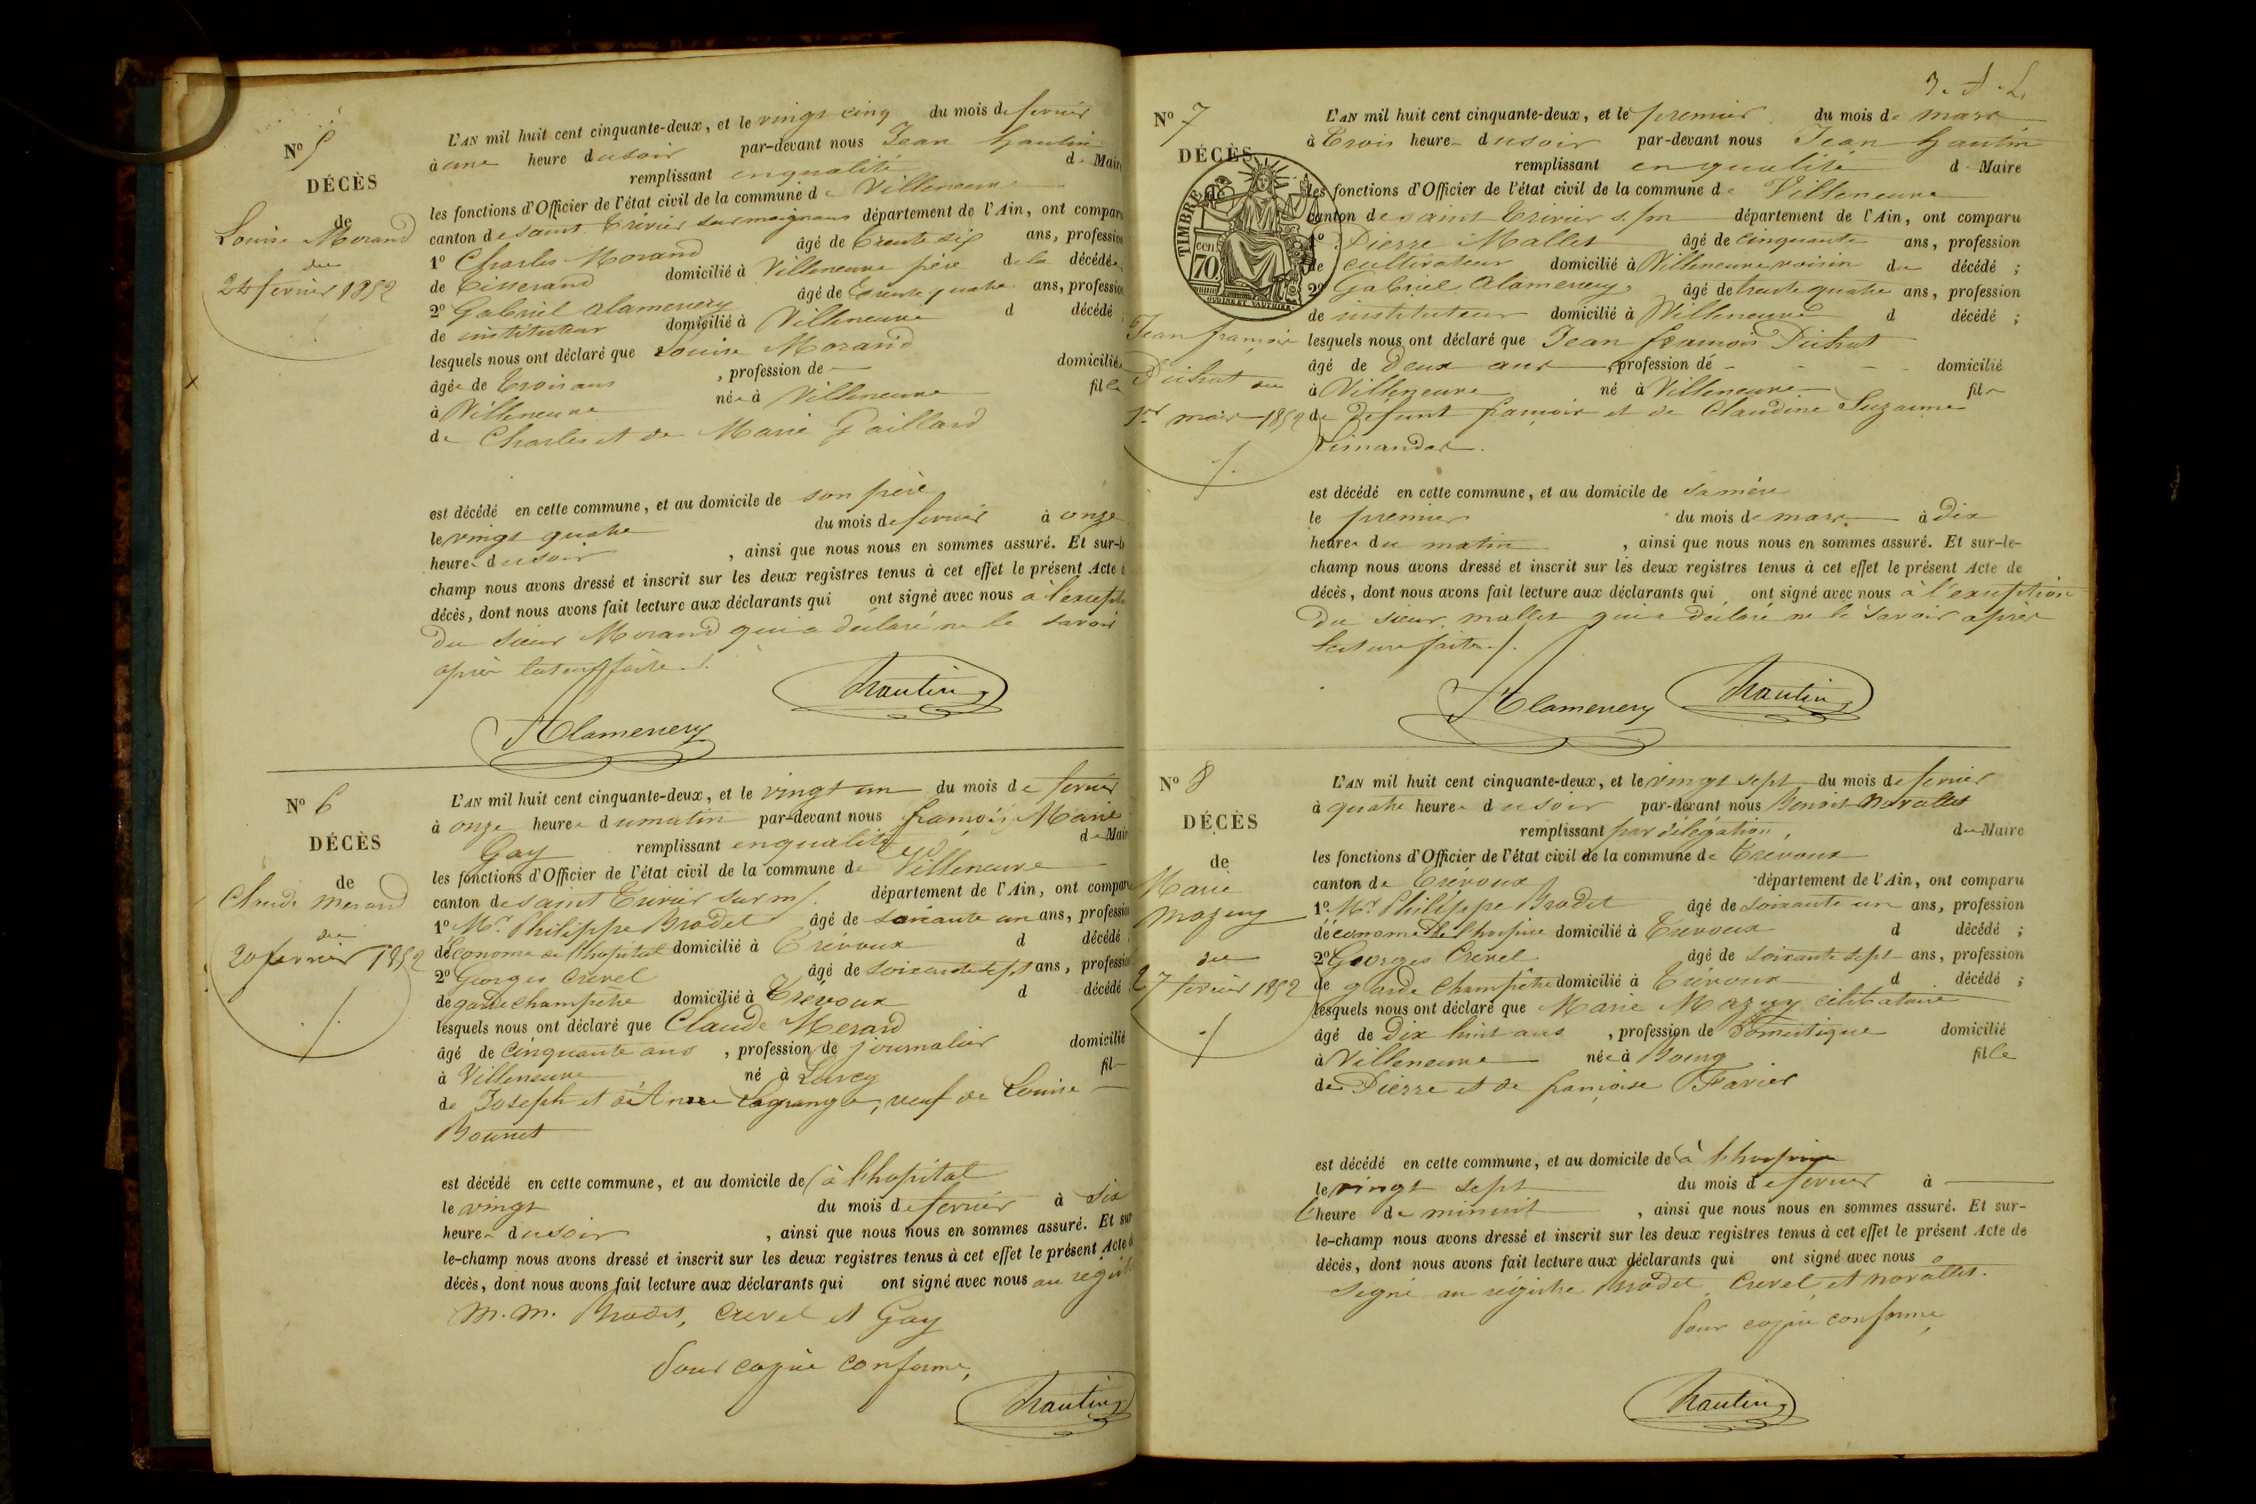 Nº 5
DÉCÈS
de
Louise Morand
du
24 fevrier 1852
L'AN mil huit cent cinquante-deux, et le vingt cinq du mois de fevrier
à une heure du soir par-devant nous Jean Hautin
remplissant en qualité de Maire
les fonctions d'Officier de l'état civil de la commune de Villeneuve
canton de saint Trivier sur moignans département de l'Ain, ont comparu
1º Charles Morand âgé de trente six ans, profession
de Tisserand domicilié à Villeneuve père de la décédée,
2º Gabriel alamenery âgé de trente quatre ans, profession
de instituteur domicilié à Villeneuve d décédé ;
lesquels nous ont déclaré que Louise Morand
âgée de trois ans , profession de — domiciliée
à Villeneuve née à Villeneuve fille
de Charles et de Marie Gaillard
est décédé en cette commune, et au domicile de son père
le vingt quatre du mois de fevrier à onze
heures du soir , ainsi que nous nous en sommes assuré. Et sur-le-
champ nous avons dressé et inscrit sur les deux registres tenus à cet effet le présent Acte de
décès, dont nous avons fait lecture aux déclarants qui ont signé avec nous à l'exception
du sieur Morand qui a déclaré ne le savoir
après lecture faite ./.
Alamenery Hautin
Nº 6
DÉCÈS
de
Claude Merand
du
20 fevrier 1852
./.
L'AN mil huit cent cinquante-deux, et le vingt un du mois de fevrier
à onze heures du matin par-devant nous françois Marie
Gay remplissant en qualité de Maire
les fonctions d'Officier de l'état civil de la commune de Villeneuve
canton de saint Trivier sur m/. département de l'Ain, ont comparu
1º Mr Philippe Brodet âgé de soixante un ans, profession
de Econome de l'hopital domicilié à Trévoux d décédé ;
2º Georges Crevel âgé de soixante sept ans, profession
de garde champêtre domicilié à Trévoux d décédé ;
lesquels nous ont déclaré que Claude Merand
âgé de cinquante ans , profession de journalier domicilié
à Villeneuve né à Lurcy fils
de Joseph et de Anne Lagrange, veuf de Louise
Bournet
est décédé en cette commune, et au domicile de à l'hopital
le vingt du mois de fevrier à six
heures du soir , ainsi que nous nous en sommes assuré. Et sur-
le-champ nous avons dressé et inscrit sur les deux registres tenus à cet effet le présent Acte de
décès, dont nous avons fait lecture aux déclarants qui ont signé avec nous au registre
M. M. Brodet, Crevel et Gay
Pour copie conforme,
Hautin
Nº 7
DÉCÈS
TIMBRE
cen
70
Jean françois
Duhut du
1er mars 1852
./.
L'AN mil huit cent cinquante-deux, et le premier du mois de mars
à trois heures du soir par-devant nous Jean Hautin
remplissant en qualité de Maire
les fonctions d'Officier de l'état civil de la commune de Villeneuve
canton de saint Trivier s./m département de l'Ain, ont comparu
1º Pierre Mallet âgé de cinquante ans, profession
de cultivateur domicilié à Villeneuve voisin du décédé ;
2º Gabriel Alamenery, âgé de trente quatre ans, profession
de instituteur domicilié à Villeneuve d décédé ;
lesquels nous ont déclaré que Jean françois Duhut
âgé de deux ans , profession de - domicilié
à Villeneuve né à Villeneuve fils
de défunt françois et de Claudine Suzanne
est décédé en cette commune, et au domicile de sa mère
le premier du mois de mars à dix
heures du matin , ainsi que nous nous en sommes assuré. Et sur-le-
champ nous avons dressé et inscrit sur les deux registres tenus à cet effet le présent Acte de
décès, dont nous avons fait lecture aux déclarants qui ont signé avec nous à l'exception
du sieur mallet qui a déclaré ne le savoir après
lecture faite ./.
Alamenery Hautin
Nº 8
DÉCÈS
de
Marie
Mazuy
du
27 fevrier 1852
./.
L'AN mil huit cent cinquante-deux, et le vingt sept du mois de fevrier
à quatre heures du soir par-devant nous Benoit Novallet
remplissant par délégation, du Maire
les fonctions d'Officier de l'état civil de la commune de Trévoux
canton de Trévoux département de l'Ain, ont comparu
1º Mr Philippe Brodet âgé de soixante un ans, profession
de économe de l'hospice domicilié à Trévoux d décédé ;
2º Georges Crevel âgé de soixante sept ans, profession
de garde champêtre domicilié à Trévoux d décédé ;
lesquels nous ont déclaré que Marie Mazuy célibataire
âgé de Dix huit ans , profession de Domestique domicilié
à Villeneuve née à Bourg fille
de Pierre et de françoise Favier
est décédé en cette commune, et au domicile de à l'hospice
le vingt sept du mois de fevrier à —
l'heure de minuit , ainsi que nous nous en sommes assuré. Et sur-
le-champ nous avons dressé et inscrit sur les deux registres tenus à cet effet le présent Acte de
décès, dont nous avons fait lecture aux déclarants qui ont signé avec nous
signé au régistre Brodet, Crevel, et Novallet.
Pour copie conforme
Hautin